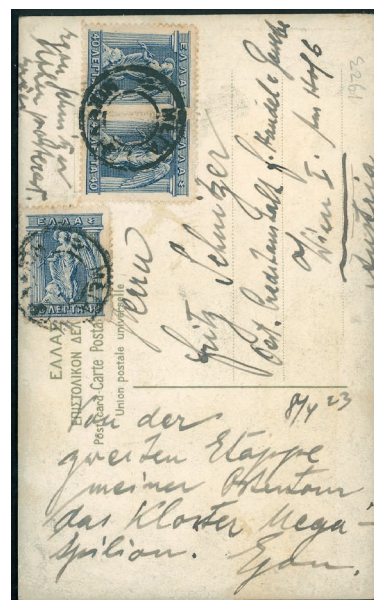 1923
40 ΛΕΡΤΑ 40
ΛΕΡΤΑ 40
ΕΛΛΑΣ
ΛΕΡΤΑ
ΕΛΛΑΣ
ΕΠΙΣΤΟΛΙΚΟΝ ΔΕΛ
Postcard-Carte Postale
Union postale universelle
Herrn
Fritz Schnizer
Öst. Creditanstalt f. Handel & Gewerbe
Wien I. am Hof 6
Austria
8/4 23
Von der
zweiten Etappe
meiner Orienttour
das Kloster Mega-
spilion. Egon.